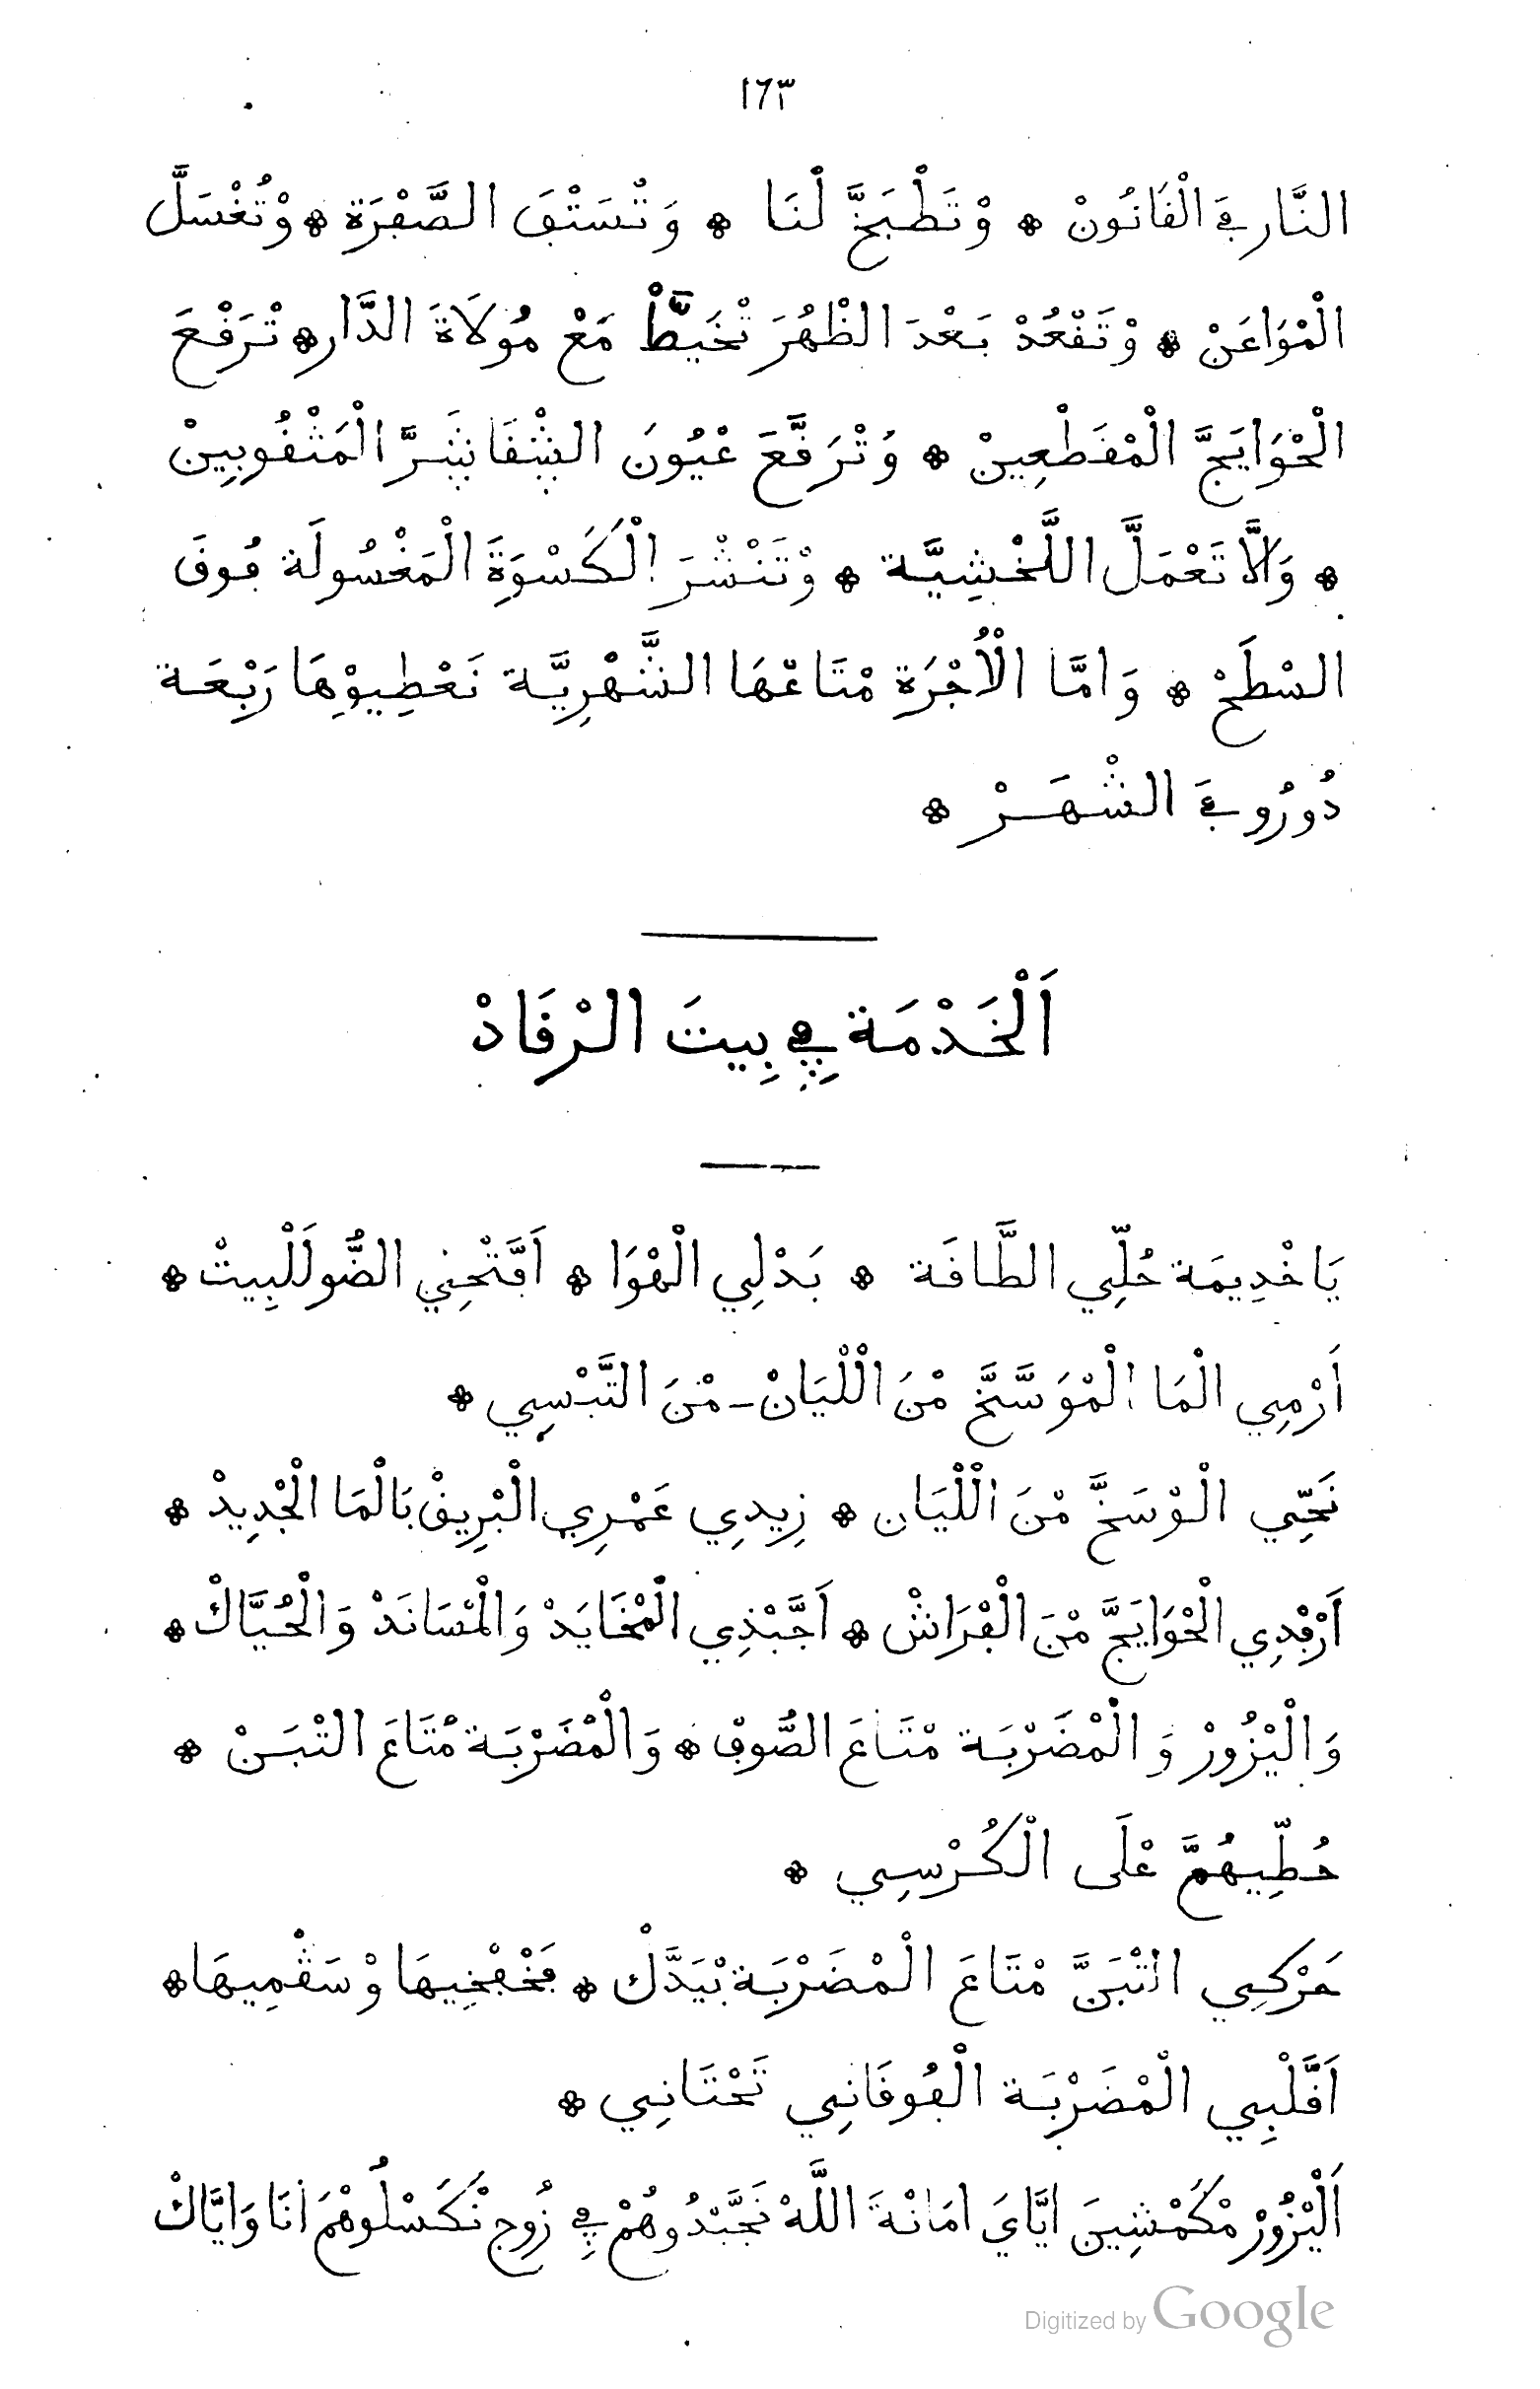 ١٦٣
النَّار ڢَى الْڧَانُونْ ❊ وْتَطْبَخَّ لْنَا ❊ وَتْسَتْڢَ الصَّڢْرَة ❊ وْتُغْسَلَّ
الْمْوَاعَنْ ❊ وْتَڧْعُدْ بَعْدَ الظْهُرَ تْخَيَّطْ مَعْ مُولَاةَ الدَّار ❊ تْرَڢْعَ
الْحْوَايَجَّ الْمْڧَطْعِينْ ❊ وَتْرَڧَّعَ عْيُونَ الشْڧَاشَرَّ الْمَثْڧُوبِينْ
❊ وَلَّا تَعْمَلَّ اللَّخْشِيَّة ❊ وْتَنْشْرَ الْكَسْوَةَ الْمَغْسُولَة ڢُوڧَ
السْطَحْ ❊ وَامَّا الْاُجْرَة مْتَاعْهَا الشَّهْرِيَّة نَعْطِيوْهَا رَبْعَة
دُورُو ڢَى الشْهَرْ ❊
اَلْخَدْمَة ڢِي بِيتَ الرْڧَادْ
يَا خْدِيمَة حُلِّي الطَّاڧَة ❊ بَدْلِي الْهْوَا ❊ اَڢَّتْحِي الضُّو لَلْبِيتْ ❊
اَرْمِي الْمَا الْمْوَسَّخَّ مْنَ الْلْيَانْ ـ مْنَ التَّبْسِي ❊
نَحِّي الْوْسَخَّ مْنَ الْلْيَان ❊ زِيدِي عَمْرِي الْبْرِيڧْ بَالْمَا الْجْدِيدْ ❊
اَرْڢْدِي الْحْوَايَجَّ مْنَ الْڢْرَاشْ ❊ اَجَّبْذِي الْمْخَايَدْ وَالْمْسَانَدْ وَالْحُيَّاكْ ❊
وَالْيْزُورْ وَ الْمْضَرْبَة مْتَاعَ الصُّوڢْ ❊ وَالْمْضَرْبَة مْتَاعَ التْبَنْ ❊
حُطِّيهُمَّ عْلَى الْكُرْسِي ❊
حَرْكِي التْبَنَّ مْتَاعَ الْمْضَرْبَة بْيَدَّكْ ❊ ڢَخْڢْخِيهَا وْسَڧْمِيهَا ❊
اَڧَّلْبِي الْمْضَرْبَة الْڢُوڧَانِي تَحْتَانِي ❊
اَلْيْزُورْ مْكَمْشِينَ ايَّايَ امَانْةَ اللَّهْ نَجَّبْدُوهُمْ ڢِي زُوج نْكَسْلُوهْمَ انَا وَايَّاكْ
Digitized by Google